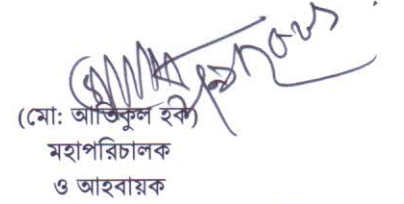 (মো: আতিকুল হক)
মহাপরিচালক
ও আহবায়ক